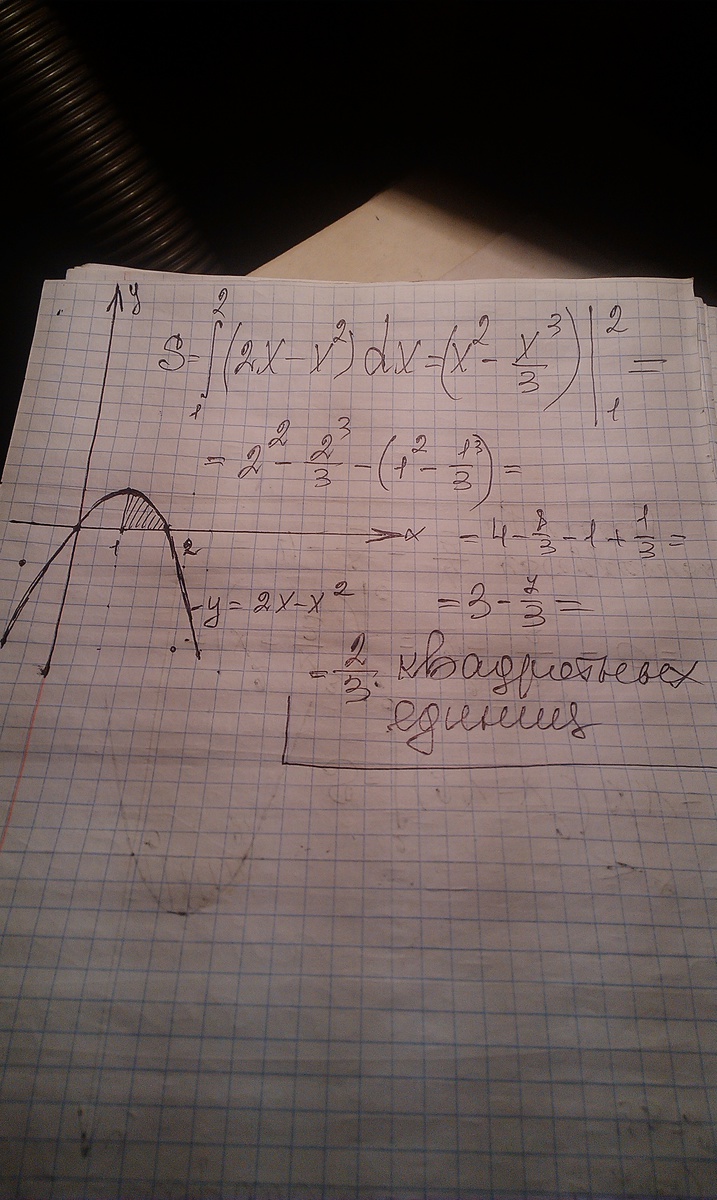 y
S=∫₁²(2x-x²)dx=(x²-x³/3)|₁²=
=2²-2³/3-(1²-1³/3)=
x
=4-8/3-1+1/3=
1 2
y=2x-x²
=3-7/3=
=2/3 квадратных
единиц